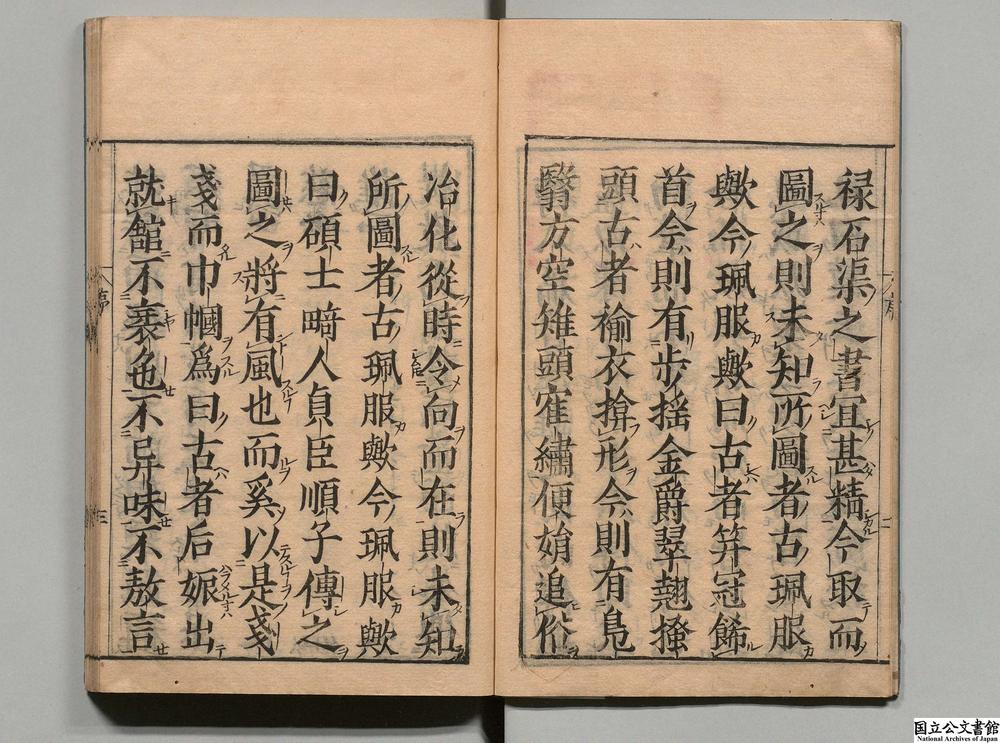 祿石渠之書宜甚精今取而
圖之則未知所圖者古珮服
歟今珮服歟曰古者筓冠餙
首今則有步摇金爵翠翹搔
頭古者褕衣揜形今則有鳬
翳方空雉頭隺繡便娟追俗
冶化從時令向而在則未知
所圖者古珮服歟今珮服歟
曰碩士畸人貞臣順子傳之
圖之將有風也而奚以是戔
戔而巾幗爲曰古者后娠出
就舘不衺色不异味不敖言
国立公文書館
National Archives of Japan